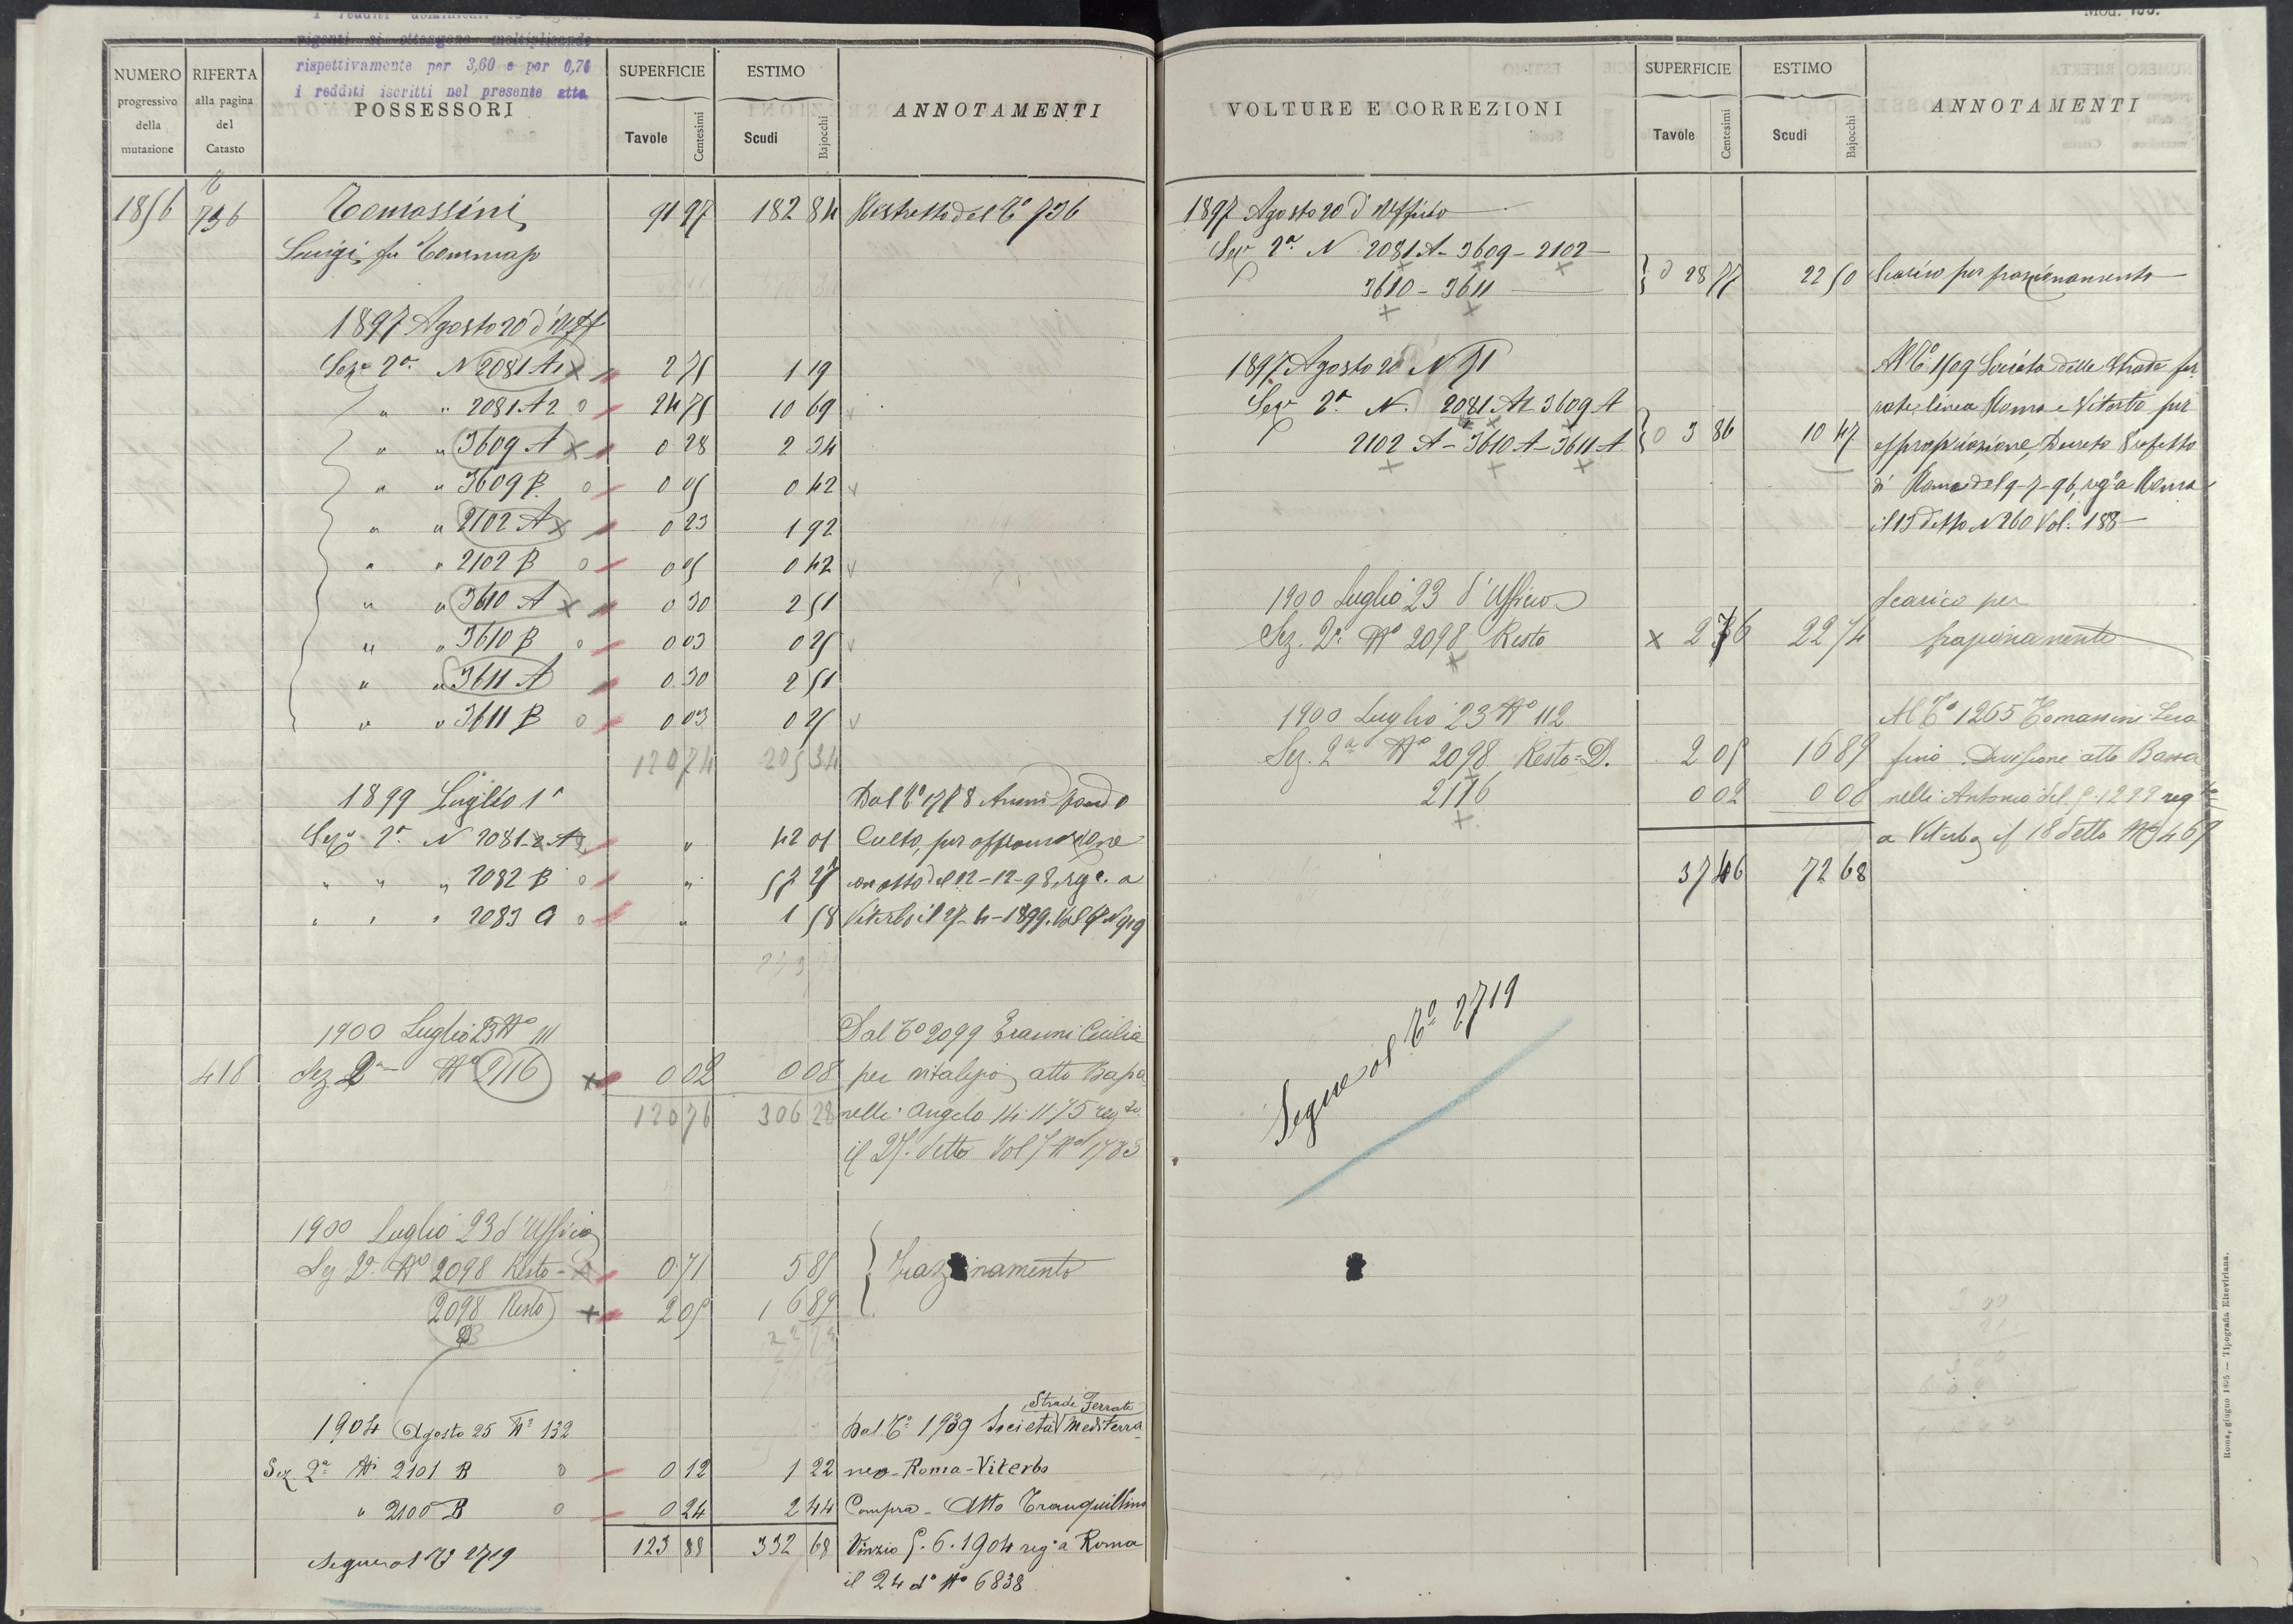 vigenti si ottengono moltiplicando
rispettivamente per 3,60 e per 0,70
i redditi iscritti nel presente atto
NUMERO progressivo della mutazione
RIFERTA alla pagina del Catasto
POSSESSORI
SUPERFICIE
Tavole Centesimi
ESTIMO
Scudi Bajocchi
ANNOTAMENTI
1856 736 Tomassini 91 97 182 84 Ristretto del T.o 736
Luigi fu Tommaso
1897 Agosto 20 d'Uff
Sez.e 2a N 2081 A1 x 2 75 1 19
" " 2081 A2 o 24 75 10 69
" " 3609 A x 0 28 2 34
" " 3609 B o 0 05 0 42
" " 2102 A x 0 23 1 92
" " 2102 B o 0 05 0 42
" " 3610 A x 0 30 2 51
" " 3610 B o 0 03 0 25
" " 3611 A 0 30 2 51
" " 3611 B o 0 03 0 25
120 74 205 34
1899 Luglio 1° Dal T.o
Sez.e 2a N 2081 " 42 01 Culto, per affrancazione
" " " 2082 B o " 57 27 con atto del 12-12-98, reg.o a
" " " 2083 a o " 1 58 Viterbo il 27-4-1899. Vol 67 N 919
1900 Luglio 23 No 111 Dal To 2099 Cecilia
418 Sez 2a No 2116 x 0 02 0 08 per atto
120 76 306 28 nelli Angelo 14.11.75 reg.to
il 25. detto Vol 7 No 1783
1900 Luglio 23 d'Ufficio
Sez 2a No 2098 Resto - A 0 71 5 85 Frazionamento
2098 Resto x 2 05 16 89
B
1904 Agosto 25 No 132 Dal To 1939 Società Strade Ferrate Mediterra
Sez 2a Ni 2101 B o 0 12 1 22 neo - Roma - Viterbo
" 2100 B o 0 24 2 44 Compra - Atto Tranquillino
segue al To 2719 123 88 332 68 Vinzio 5.6.1904 reg.o a Roma
il 24 do No 6838
Mod. 133.
VOLTURE E CORREZIONI
SUPERFICIE
Tavole Centesimi
ESTIMO
Scudi Bajocchi
ANNOTAMENTI
1897 Agosto 20 d'Ufficio
Sez 2a N 2081 A - 3609 - 2102
3610 - 3611 28 77 22 50 Scarico per frazionamento
1897 Agosto 20 N 71 Al To 1509 Società delle Strade fer
Sez 2a N. 2081 A1 3609 A rate, linea Roma e Viterbo per
2102 A - 3610 A - 3611 A 3 86 10 47 espropriazione, Decreto Prefetto
di Roma del 9-7-96, reg.o a Roma
il 13 detto N 260 Vol. 188
1900 Luglio 23 d'Ufficio Scarico per
Sez. 2a No 2098 Resto x 2 76 22 74 frazionamento
1900 Luglio 23 No 112 Al To 1265 Tomassini Sera
Sez. 2a No 2098 Resto = B. 2 05 16 89 fino Divisione atto Bassa
2116 0 02 0 08 nelli Antonio del 5.12.99 reg.to
a Viterbo il 18 detto No 467
37 46 72 68
Segue al To 2719
Roma, giugno 1895 — Tipografia Elzeviriana.